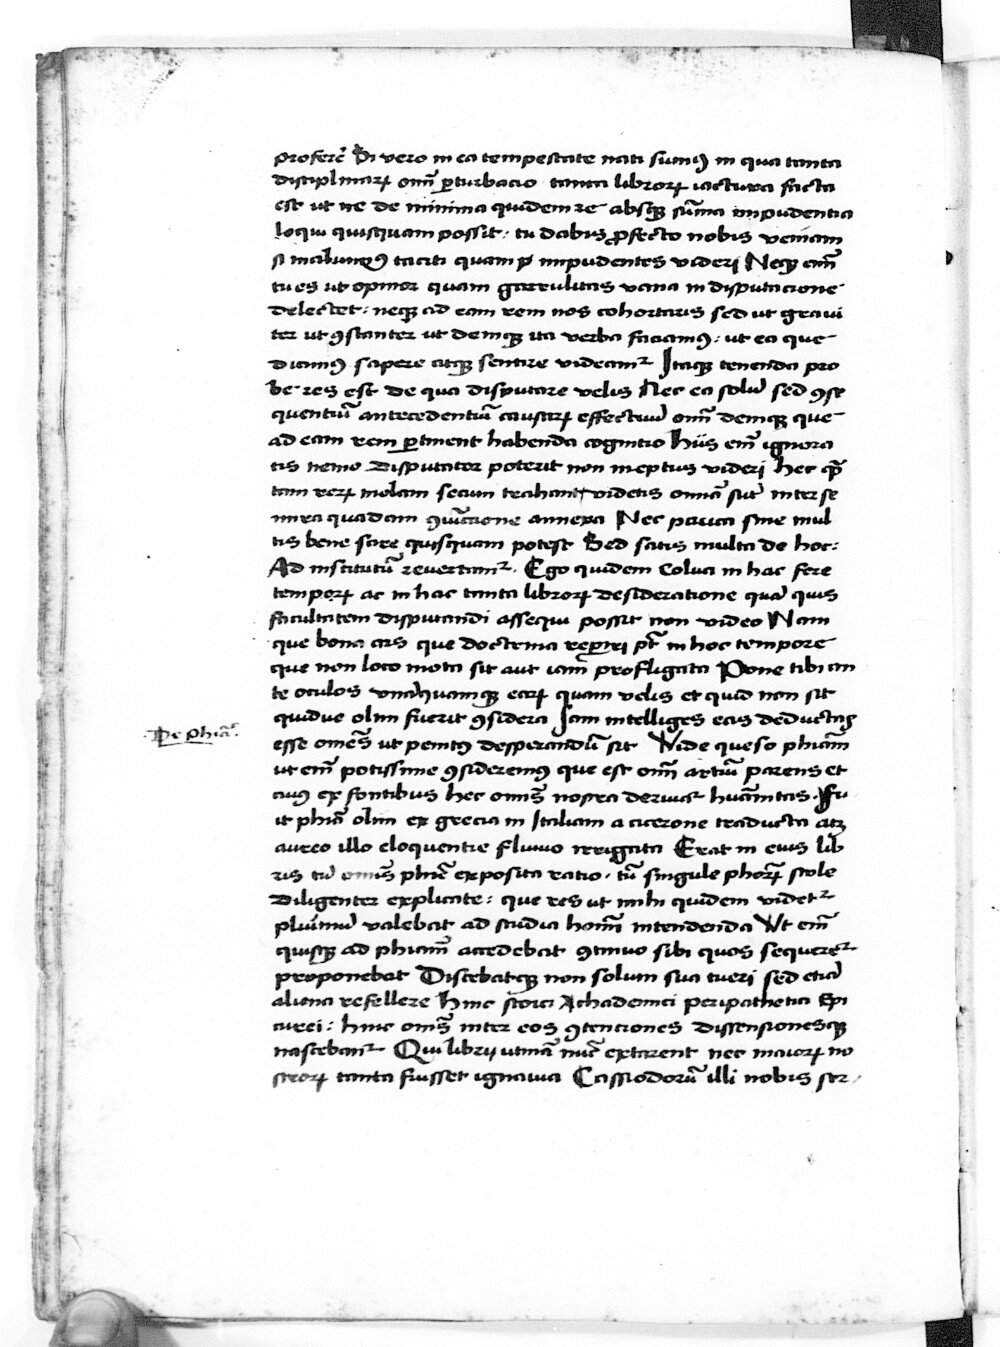 proferē Si vero in ea tempestate nati sumꝰ in qua tanta
disciplinarꝝ omī ꝑturbacio tanta librorꝝ iactura facta
est ut ne de minima quidem re absqꝫ sūma impudentia
loqui quisquam possit: tu dabis ꝓfecto nobis veniam
si malumꝰ taciti quam impudentes videri Neqꝫ em̄
tu es ut opinor quam garrulitas vana in disputacione
delectet: neqꝫ ad eam rem nos cohortaris sed ut gravi
ter ut ꝯstanter ut deniqꝫ ita verba faciamꝰ: ut ea que
dicimꝰ sapere atqꝫ sentire videamr̃ Itaqꝫ tenenda pro
be res est de qua disputare velis Nec ea solū sed ꝯse
quentiū antecedentiū causarꝝ effectuū omī deniqꝫ que
ad eam rem ꝑtinent habenda cognitio hiis em̄ ignora
tis nemo disputator poterit non ineptus videri hec qm̄
tam rerꝝ molam secum trahant videtis omnia sūt inter se
mira quadam ꝯiūctione annexa Nec pauca sine mul
tis bene scire quisquam potest Sed satis multa de hoc:
Ad institutū revertamr̃. Ego quidem Coluci in hac fere
temporꝝ ac in hac tanta librorꝝ desideratione quā quis
facultatem disputandi assequi possit non video Nam
que bona ars que doctrina reperiri pt̄ in hoc tempore
que non loco mota sit aut iam profligata Pone tibi an
te oculos unāquamqꝫ earꝝ quam velis et quid nan sit
quidve olim fuerit ꝯsidera Jam intelliges eas deductas
esse omēs ut penitꝰ desperandū sit Vide queso phiam̄
De phiā.
ut em̄ potissime ꝯsideremꝰ que est omī artiū parens et
cuius ex fontibus hec omīs nostra derivar̃ humītas. Fu
it phiā olim ex grecia in Italiam a cicerone traducta atqꝫ
aureo illo eloquentie flumio irrigata Erat in eius lib
ris tū omīs phīe exposita ratio. tū singule phorꝝ scole
diligenter explicate: que res ut mihi quidem videtr̃
plurimū valebat ad studia homī intendenda Ut em̄
quisqꝫ ad phiam̄ accedebat ꝯtinuo sibi quos sequerer̃
proponebat Discebatqꝫ non solum sua tueri sed etiā
aliena refellere Hinc stoici Achademici peripathetici Epi
curei: hinc omīs inter eos ꝯtenciones dissensionesqꝫ
nascebanr̃ Qui librij utinā nūc extarent nec maiorꝝ no
strorꝝ tanta fuisset ignavia Cassiodorū illi nobis ser